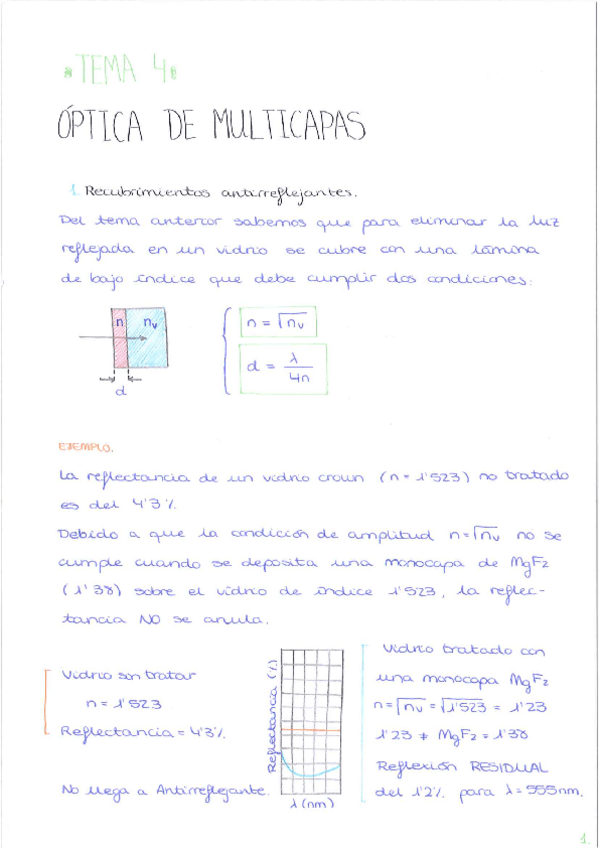 TEMA 4
ÓPTICA DE MULTICAPAS
1. Recubrimientos antirreflejantes.
Del tema anterior sabemos que para eliminar la luz
reflejada en un vidrio se cubre con una lámina
de bajo índice que debe cumplir dos condiciones:
n nv
n = √nv
d = λ/4n
d
EJEMPLO.
La reflectancia de un vidrio crown (n = 1'523) no tratado
es del 4'3%.
Debido a que la condición de amplitud n=√nv no se
cumple cuando se deposita una monocapa de MgF2
(1'38) sobre el vidrio de índice 1'523, la reflec-
tancia NO se anula.
Vidrio sin tratar
n = 1'523
Reflectancia = 4'3%.
No llega a Antirreflejante.
Reflectancia (%)
λ (nm)
Vidrio tratado con
una monocapa MgF2
n = √nv = √1'523 = 1'23
1'23 ≠ MgF2 = 1'38
Reflexión RESIDUAL
del 1'2% para λ = 555nm.
1.